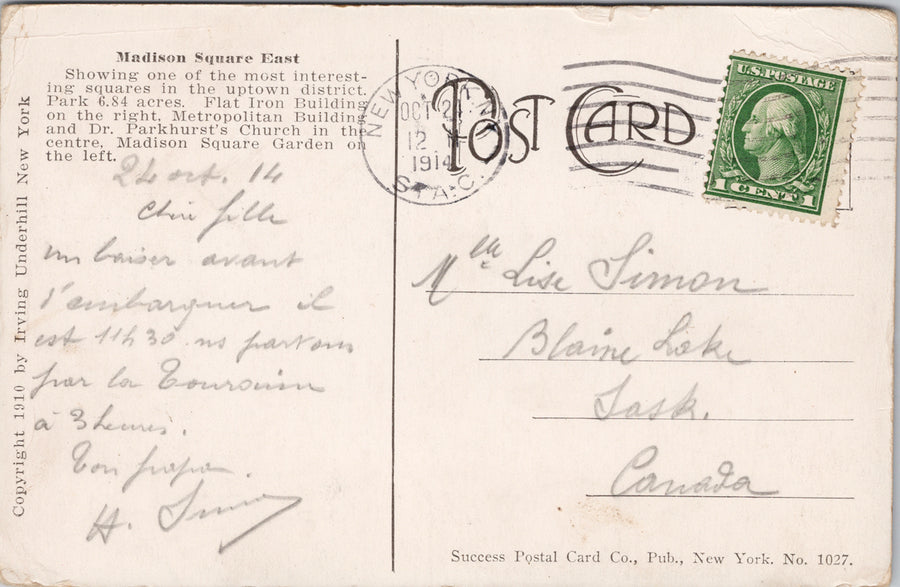 Madison Square East
Showing one of the most interest-
ing squares in the uptown district.
Park 6.84 acres. Flat Iron Building
on the right, Metropolitan Building
and Dr. Parkhurst's Church in the
centre, Madison Square Garden on
the left.
24 oct. 14
Chère fille
un baiser avant
s'embarquer il
est 11h30 ns partons
par la Touraine
à 3 heures.
Ton papa.
H. Simon
Copyright 1910 by Irving Underhill New York
POST CARD
NEW YORK, N.
OCT 24
12
1914
STA. C.
U.S. POSTAGE
1 CENT 1
Melle Lise Simon
Blaine Lake
Sask.
Canada
Success Postal Card Co., Pub., New York. No. 1027.